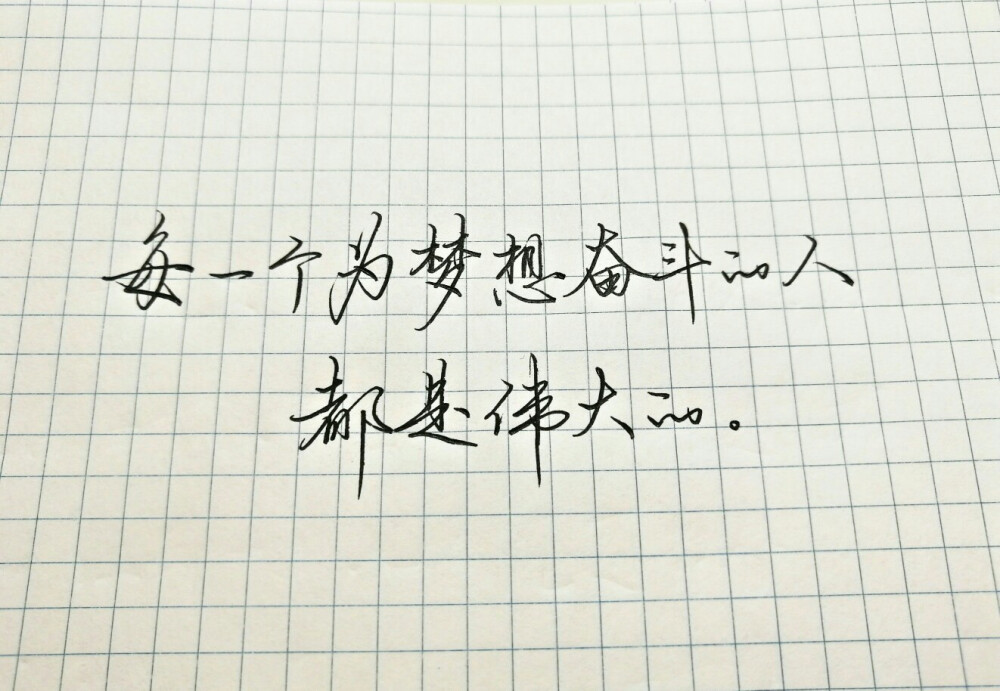 每一个为梦想奋斗的人
都是伟大的。